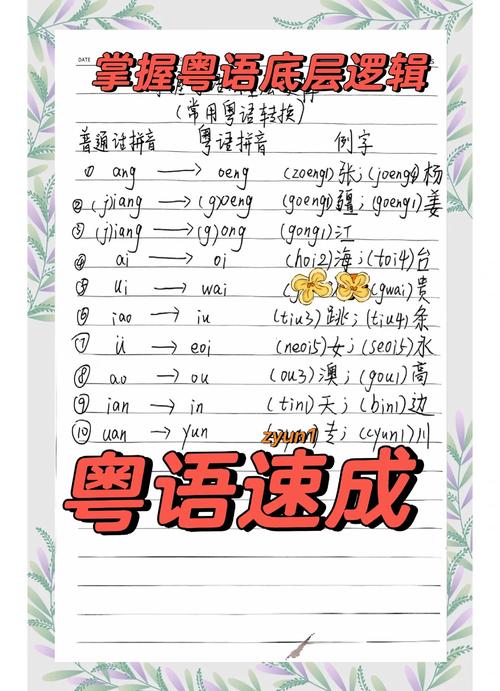 DATE
掌握粤语底层逻辑
(常用粤语转换)
普通话拼音 粤语拼音 例字
① ang → oeng (zoeng1) 张; (joeng4) 杨
② (j)iang → (g)oeng (goeng1) 疆; (goeng1) 姜
③ (j)iang → (g)ong (gong1) 江
④ ai → oi (hoi2) 海; (toi4) 台
⑤ ui → wai (gwai) 貴
⑥ iao → iu (tiu3) 跳; (tiu4) 条
⑦ ü → eoi (neoi5) 女; (seoi5) 水
⑧ ao → ou (ou3) 澳; (gou1) 高
⑨ ian → in (tin1) 天; (bin1) 边
⑩ uan → yun zyun1 专; (cyun1) 川
粤语速成